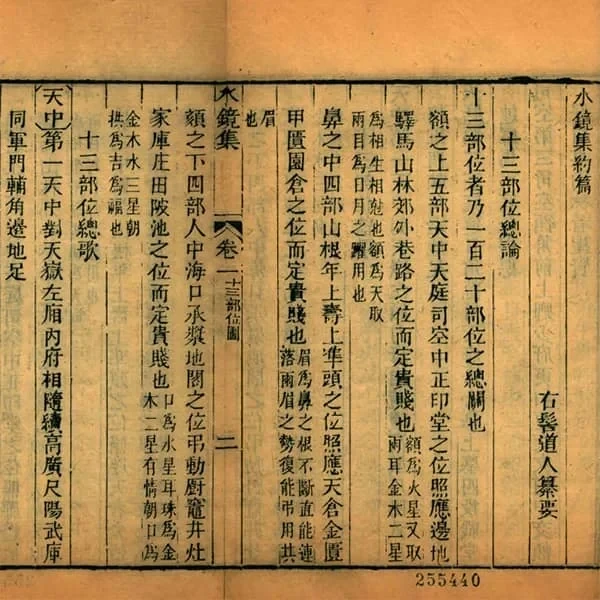 水鏡集約篇
右髻道人纂要
十三部位總論
十三部位者乃一百二十部位之總關也
額之上五部天中天庭司空中正印堂之位照應邊地
驛馬山林郊外巷路之位而定貴賤也額爲火星又取
兩耳金木二星
爲相生相尅也額爲天取
兩目爲日月之躍用也
鼻之中四部山根年上壽上準頭之位照應天倉金匱
甲匱園倉之位而定貴賤也眉爲鼻之根不斷直能連
落兩眉之勢復能弔用共
眉
也
水鏡集
卷一
十三部位圖
二
頦之下四部人中海口承漿地閣之位弔動厨竈井灶
家庫庄田陂池之位而定貴賤也口爲水星耳珠爲金
木二星有情朝口爲
金木水三星朝
拱爲吉爲福也
十三部位總歌
天中第一天中對天獄左廂內府相隨續高廣尺陽武庫
同軍門輔角邊地足
255440